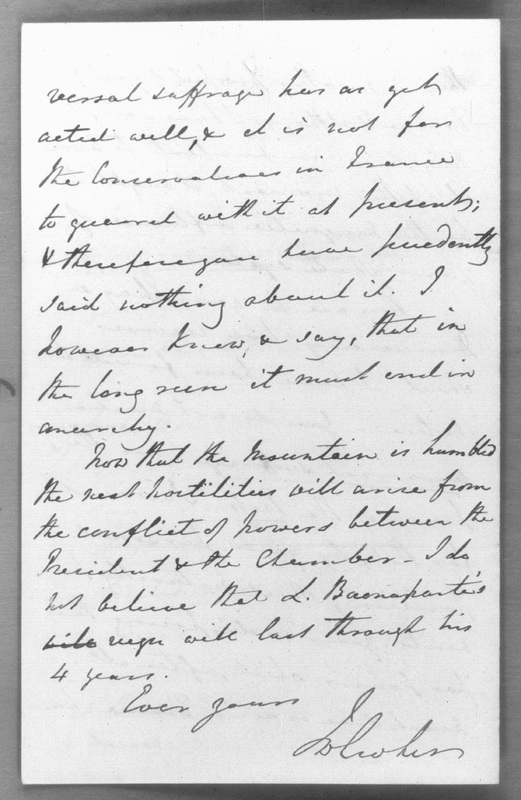 versal suffrage has as yet
acted well, & it is not for
the Conservatives in France
to quarrel with it at present;
& therefore you have prudently
said nothing about it. I
however know, & say, that in
the long run it must end in
anarchy.
Now that the Mountain is humbled
the next hostilities will arise from
the conflict of powers between the
President & the Chamber – I do
not believe that L. Buonaparte's
will reign will last through his
4 years.
Ever yours
J W Croker